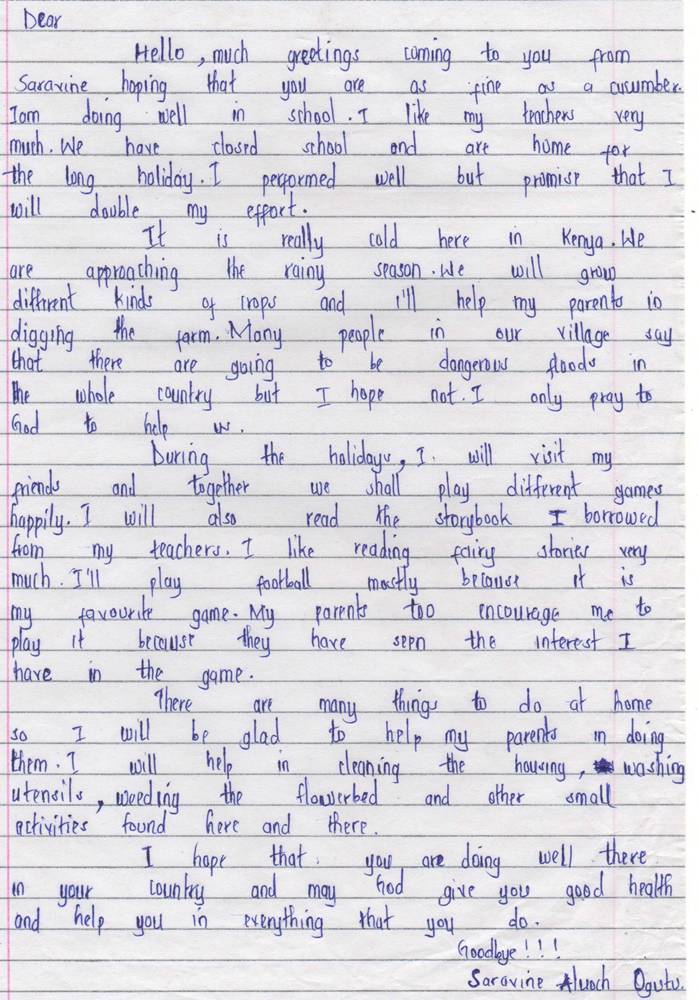 Dear
Hello, much greetings coming to you from
Saravine hoping that you are as fine as a cucumber.
Iam doing well in school. I like my teachers very
much. We have closed school and are home for
the long holiday. I performed well but promise that I
will double my effort.
It is really cold here in Kenya. We
are approaching the rainy season. We will grow
different kinds of crops and i'll help my parents in
digging the farm. Many people in our village say
that there are going to be dangerous floods in
the whole country but I hope not. I only pray to
God to help us.
During the holidays, I will visit my
friends and together we shall play different games
happily. I will also read the storybook I borrowed
from my teachers. I like reading fairy stories very
much. I'll play football mostly because it is
my favourite game. My parents too encourage me to
play it because they have seen the interest I
have in the game.
There are many things to do at home
so I will be glad to help my parents in doing
them. I will help in cleaning the housing, washing
utensils, weeding the flowerbed and other small
activities found here and there.
I hope that you are doing well there
in your country and may God give you good health
and help you in everything that you do.
Goodbye!!!
Saravine Aluoch Ogutu.